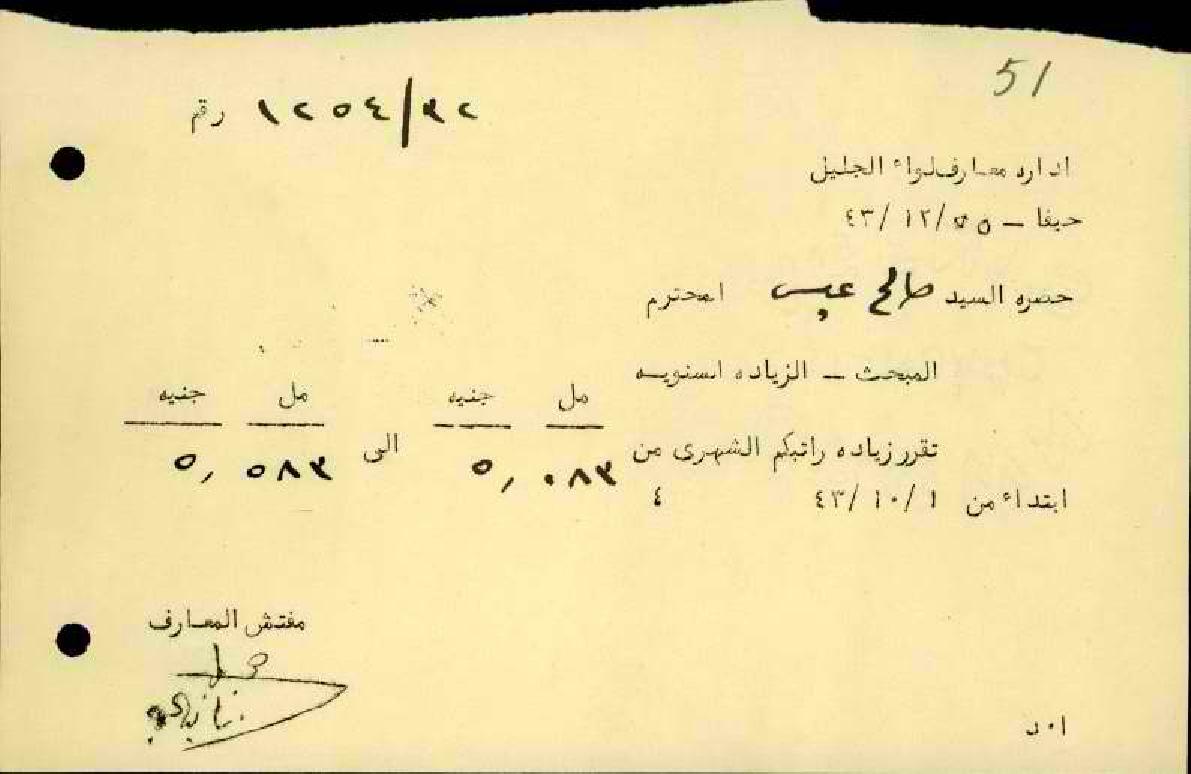 51
رقم ١٢٥٤/٣٢
ادارة معارف لواء الجليل
حيفا – ٢٥/١٢/٤٣
حضره السيد صالح المحترم
المبحث – الزياده السنويه
مل جنيه مل جنيه
تقرر زياده راتبكم الشهرى من ٠٨٣ ,٥ الى ٥٨٣ ,٥
ابتداء من ١/١٠/٤٣ ٤
مفتش المعارف